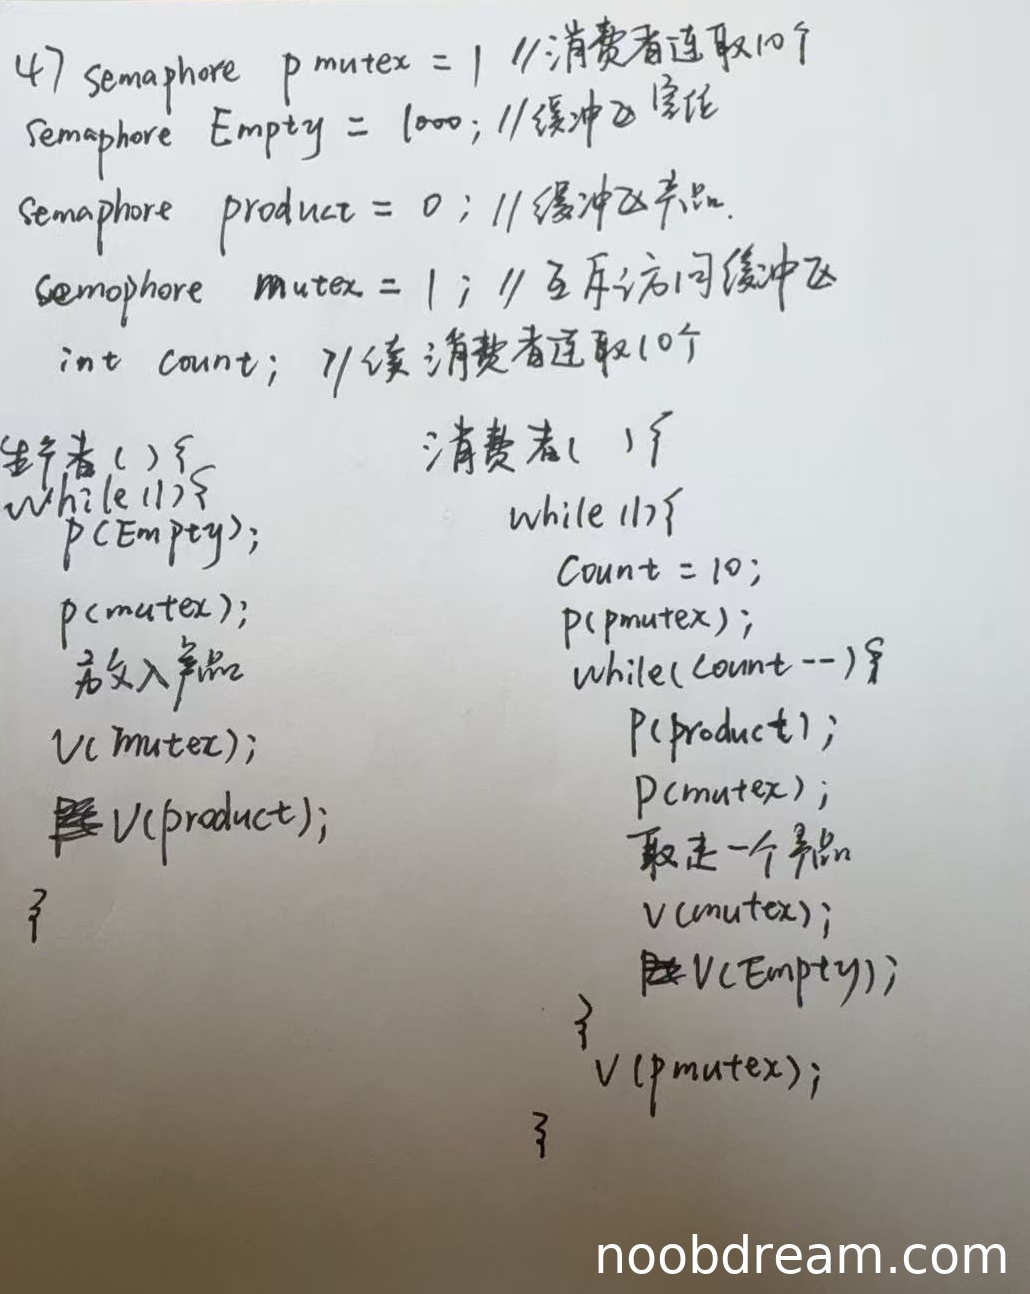 4) semaphore pmutex = 1 //消费者连取10个
semaphore Empty = 1000; //缓冲区空位
semaphore product = 0; //缓冲区产品.
semophore mutex = 1; //互斥访问缓冲区
int count; //续消费者连取10个
生产者(){
while(1){
P(Empty);
P(mutex);
放入产品
V(mutex);
V(product);
}
消费者( ){
while(1){
Count = 10;
P(pmutex);
while(Count--){
P(product);
P(mutex);
取走一个产品
V(mutex);
V(Empty);
}
V(pmutex);
}
noobdream.com